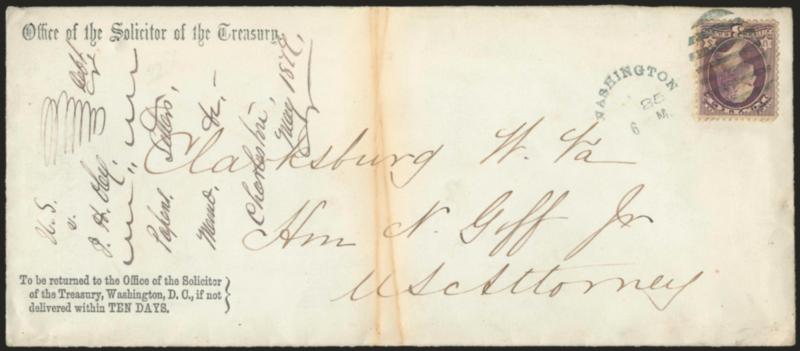 Office of the Solicitor of the Treasury.
WASHINGTON
25
6 M.
Clarksburg W. Va
Hon N. Goff Jr
US Attorney
U. S.
v.
Debt
Papers, Letters,
Memo, &c. —
Charleston,
May 1878,
To be returned to the Office of the Solicitor
of the Treasury, Washington, D. C., if not
delivered within TEN DAYS.